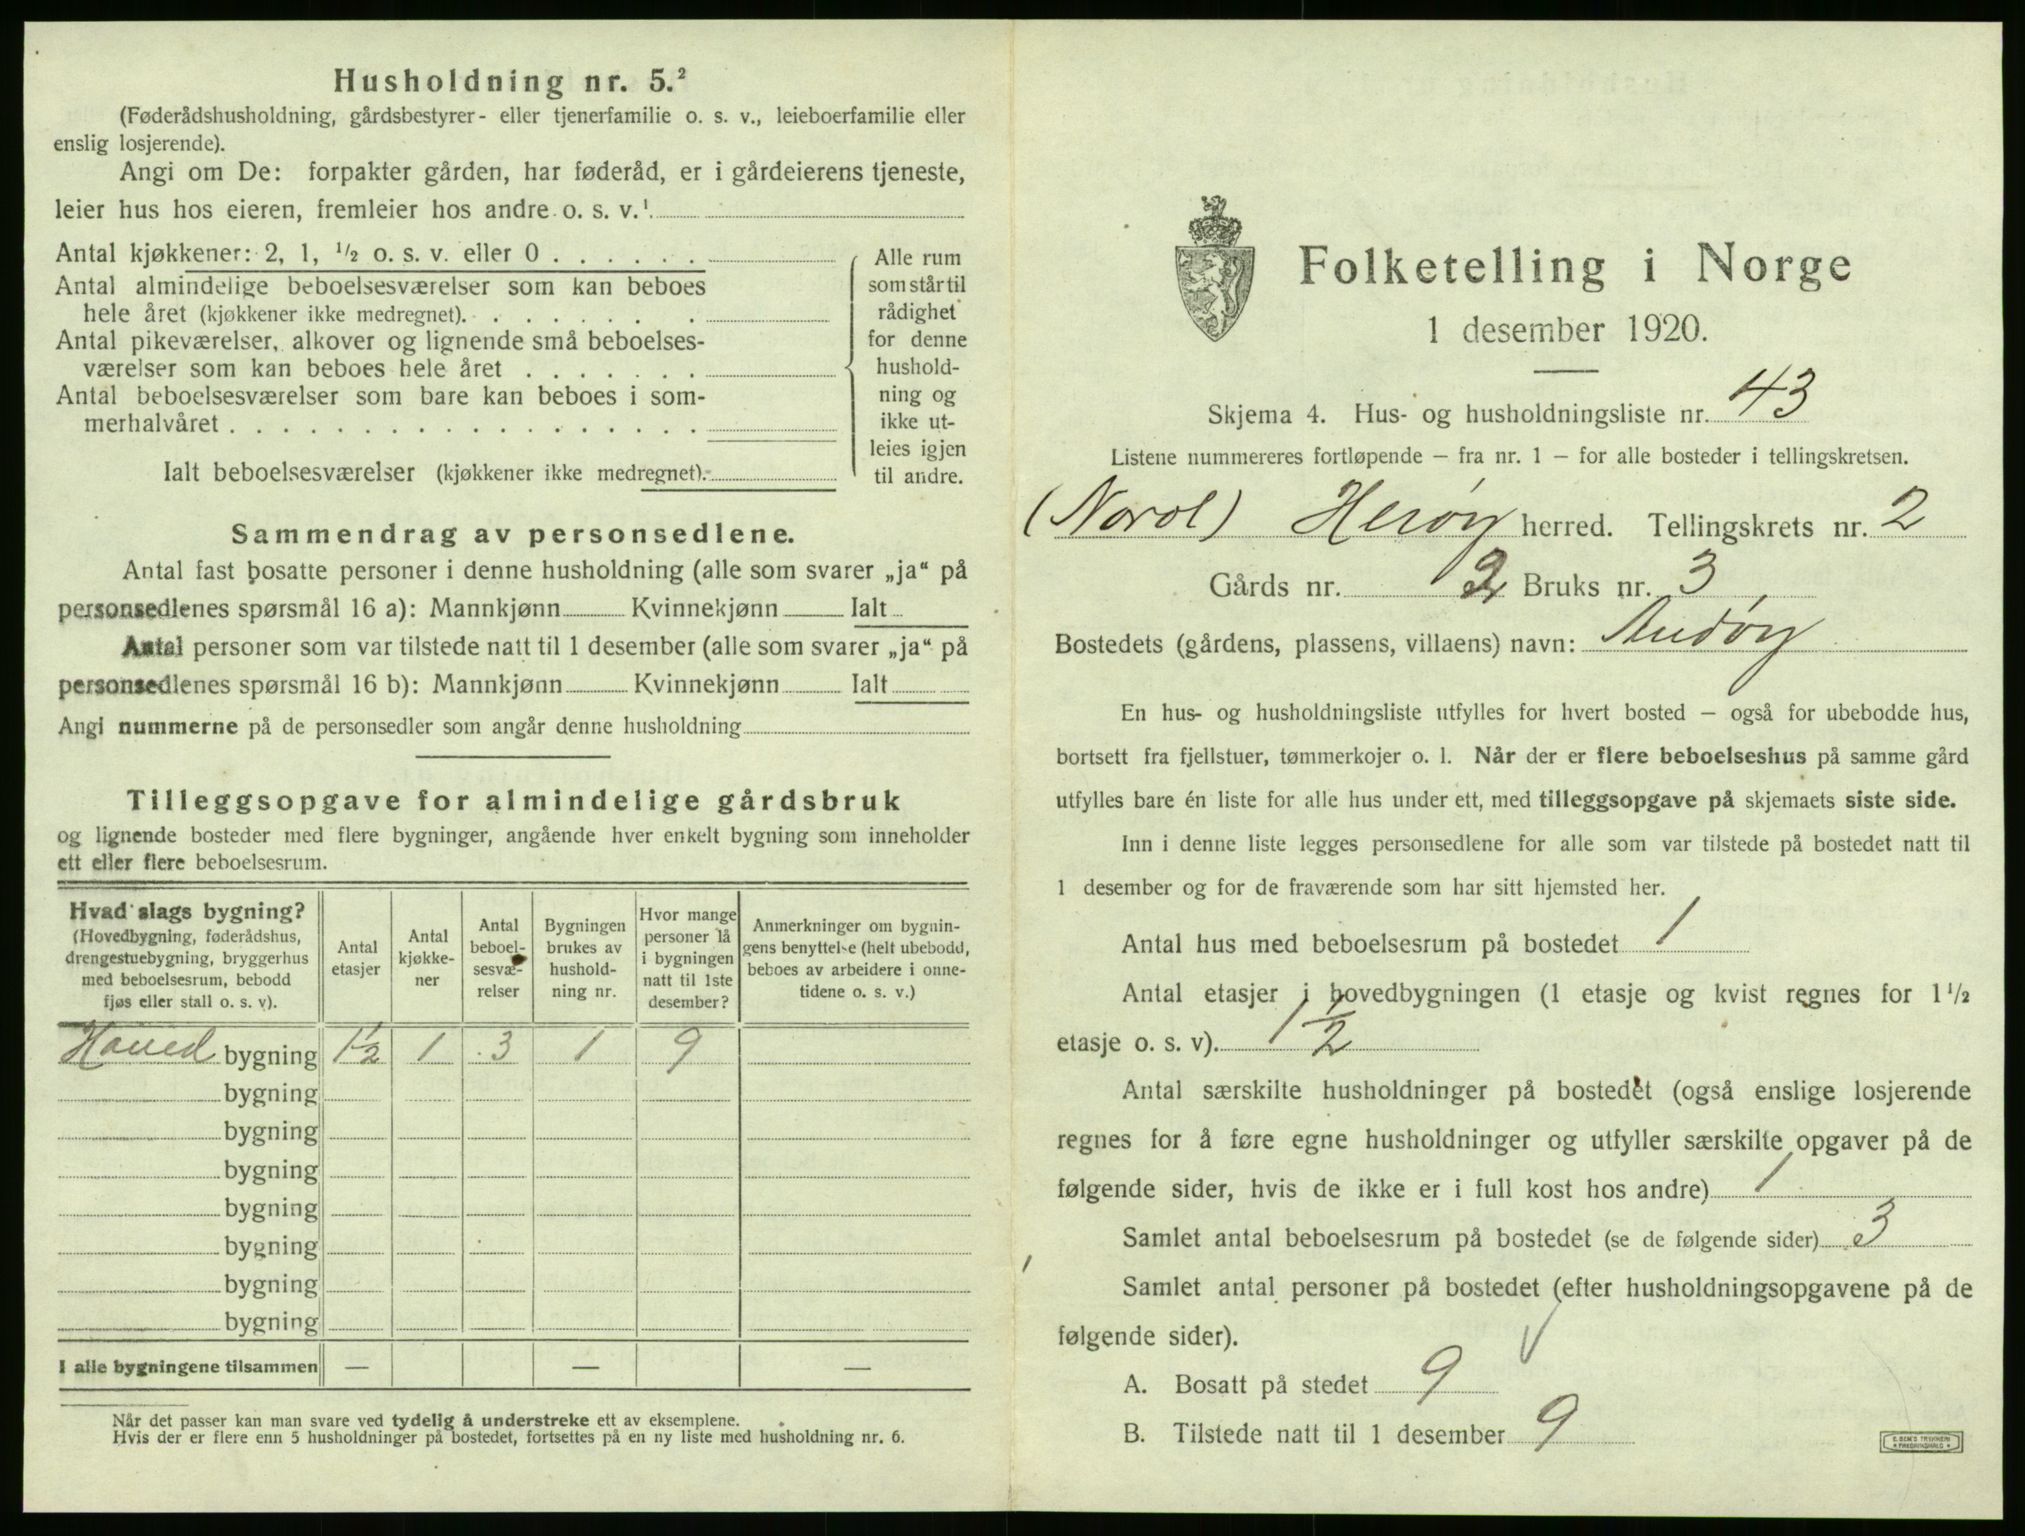 Husholdning nr. 5.²
(Føderådshusholdning, gårdsbestyrer- eller tjenerfamilie o. s. v., leieboerfamilie eller
enslig losjerende).
Angi om De: forpakter gården, har føderåd, er i gårdeierens tjeneste,
leier hus hos eieren, fremleier hos andre o. s. v.¹
Antal kjøkkener: 2, 1, ½ o. s. v. eller 0
Antal almindelige beboelsesværelser som kan beboes
hele året (kjøkkener ikke medregnet).
Antal pikeværelser, alkover og lignende små beboelses-
værelser som kan beboes hele året
Antal beboelsesværelser som bare kan beboes i som-
merhalvåret
Ialt beboelsesværelser (kjøkkener ikke medregnet).
Alle rum
som står til
rådighet
for denne
hushold-
ning og
ikke ut-
leies igjen
til andre.
Sammendrag av personsedlene.
Antal fast bosatte personer i denne husholdning (alle som svarer „ja“ på
personsedlenes spørsmål 16 a): Mannkjønn Kvinnekjønn Ialt
Antal personer som var tilstede natt til 1 desember (alle som svarer „ja“ på
personsedlenes spørsmål 16 b): Mannkjønn Kvinnekjønn Ialt
Angi nummerne på de personsedler som angår denne husholdning
Tilleggsopgave for almindelige gårdsbruk
og lignende bosteder med flere bygninger, angående hver enkelt bygning som inneholder
ett eller flere beboelsesrum.
Hvad slags bygning?
(Hovedbygning, føderådshus,
drengestuebygning, bryggerhus
med beboelsesrum, bebodd
fjøs eller stall o. s. v).
Antal
etasjer
Antal
kjøkke-
ner
Antal
beboel-
sesvæ-
relser
Bygningen
brukes av
hushold-
ning nr.
Hvor mange
personer lå
i bygningen
natt til 1ste
desember?
Anmerkninger om bygnin-
gens benyttelse (helt ubebodd,
beboes av arbeidere i onne-
tidene o. s. v.)
Hoved bygning 1½ 1 3 1 9
bygning
bygning
bygning
bygning
bygning
bygning
bygning
I alle bygningene tilsammen — — —
Når det passer kan man svare ved tydelig å understreke ett av eksemplene.
Hvis der er flere enn 5 husholdninger på bostedet, fortsettes på en ny liste med husholdning nr. 6.
Folketelling i Norge
1 desember 1920.
Skjema 4. Hus- og husholdningsliste nr. 43
Listene nummereres fortløpende – fra nr. 1 – for alle bosteder i tellingskretsen.
(Nordl) Herøy herred. Tellingskrets nr. 2
Gårds nr. 2 Bruks nr. 3
Bostedets (gårdens, plassens, villaens) navn:
En hus- og husholdningsliste utfylles for hvert bosted – også for ubebodde hus,
bortsett fra fjellstuer, tømmerkojer o. l. Når der er flere beboelseshus på samme gård
utfylles bare én liste for alle hus under ett, med tilleggsopgave på skjemaets siste side.
Inn i denne liste legges personsedlene for alle som var tilstede på bostedet natt til
1 desember og for de fraværende som har sitt hjemsted her.
Antal hus med beboelsesrum på bostedet 1
Antal etasjer i hovedbygningen (1 etasje og kvist regnes for 1½
etasje o. s. v). 1½
Antal særskilte husholdninger på bostedet (også enslige losjerende
regnes for å føre egne husholdninger og utfyller særskilte opgaver på de
følgende sider, hvis de ikke er i full kost hos andre) 1
Samlet antal beboelsesrum på bostedet (se de følgende sider) 3
Samlet antal personer på bostedet (efter husholdningsopgavene på de
følgende sider).
A. Bosatt på stedet 9
B. Tilstede natt til 1 desember 9